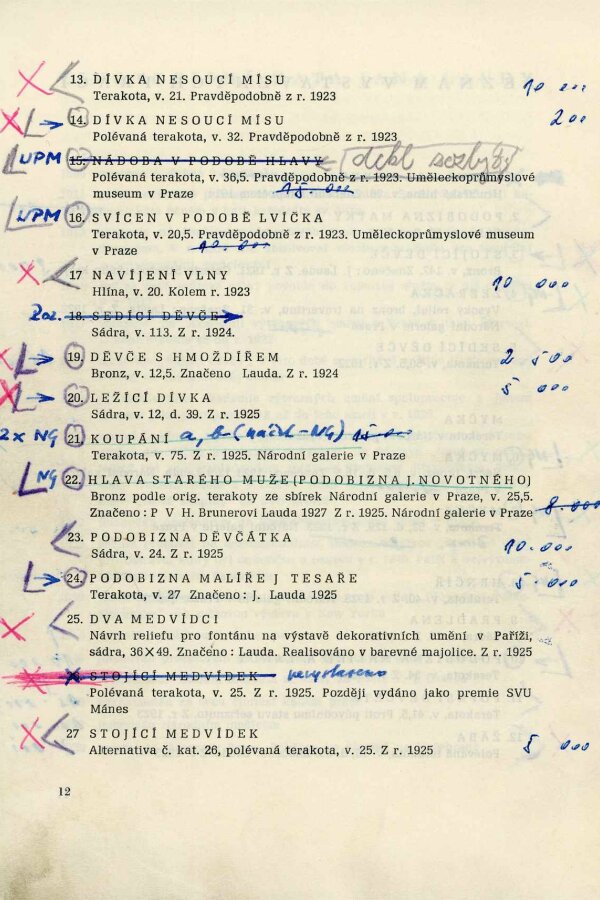 13. DÍVKA NESOUCÍ MÍSU 10 000
Terakota, v. 21. Pravděpodobně z r. 1923
14. DÍVKA NESOUCÍ MÍSU 200
Polévaná terakota, v. 32. Pravděpodobně z r. 1923
UPM 15. NÁDOBA V PODOBĚ HLAVY
Polévaná terakota, v. 36,5. Pravděpodobně z r. 1923. Uměleckoprůmyslové
museum v Praze 15.000
UPM 16. SVÍCEN V PODOBĚ LVÍČKA
Terakota, v. 20,5. Pravděpodobně z r. 1923. Uměleckoprůmyslové museum
v Praze 10.000
17 NAVÍJENÍ VLNY 10 000
Hlína, v. 20. Kolem r. 1923
18. SEDÍCÍ DĚVČE
Sádra, v. 113. Z r. 1924.
19. DĚVČE S HMOŽDÍŘEM 2 500
Bronz, v. 12,5. Značeno Lauda. Z r. 1924
20. LEŽÍCÍ DÍVKA 5 000
Sádra, v. 12, d. 39. Z r. 1925
2x NG 21. KOUPÁNÍ a, b 15 000
Terakota, v. 75. Z r. 1925. Národní galerie v Praze
NG 22. HLAVA STARÉHO MUŽE (PODOBIZNA J. NOVOTNÉHO)
Bronz podle orig. terakoty ze sbírek Národní galerie v Praze, v. 25,5.
Značeno : P V H. Brunerovi Lauda 1927 Z r. 1925. Národní galerie v Praze 8.000
23. PODOBIZNA DĚVČÁTKA
Sádra, v. 24. Z r. 1925 10.000
24. PODOBIZNA MALÍŘE J TESAŘE 5 000
Terakota, v. 27 Značeno : J. Lauda 1925
25. DVA MEDVÍDCI
Návrh reliefu pro fontánu na výstavě dekorativních umění v Paříži,
sádra, 36×49. Značeno : Lauda. Realisováno v barevné majolice. Z r. 1925
STOJÍCÍ MEDVÍDEK
Polévaná terakota, v. 25. Z r. 1925. Později vydáno jako premie SVU
Mánes
27 STOJÍCÍ MEDVÍDEK 5 000
Alternativa č. kat. 26, polévaná terakota, v. 25. Z r. 1925
12